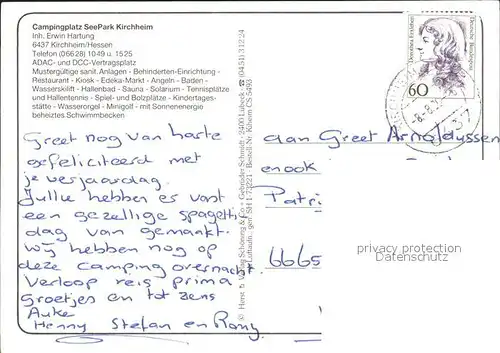 Campingplatz SeePark Kirchheim
Inh. Erwin Hartung
6437 Kirchheim/Hessen
Telefon (06628) 1049 u. 1525
ADAC- und DCC-Vertragsplatz
Mustergültige sanit. Anlagen - Behinderten-Einrichtung -
Restaurant - Kiosk - Edeka-Markt - Angeln - Baden -
Wasserskilift - Hallenbad - Sauna - Solarium - Tennisplätze
und Hallentennis - Spiel- und Bolzplätze - Kindertages-
stätte - Wasserorgel - Minigolf - mit Sonnenenergie
beheiztes Schwimmbecken
Greet nog van harte
gefeliciteerd met
je verjaardag.
Jullie hebben er vast
een gezellige spagetti
dag van gemaakt.
Wij hebben nog op
deze camping overnacht.
Verloop reis prima
Groetjes en tot ziens
Auke
Henny Stefan en Romy
© Herst. u. Verlag Schöning & Co + Gebrüder Schmidt, 2400 Lübeck
Bestell Nr. Kiheim CS 5493
Dorothea Erxleben
Deutsche Bundespost
60
aan Greet Arnoldussen
enook
Patri
6665
privacy protection
Datenschutz